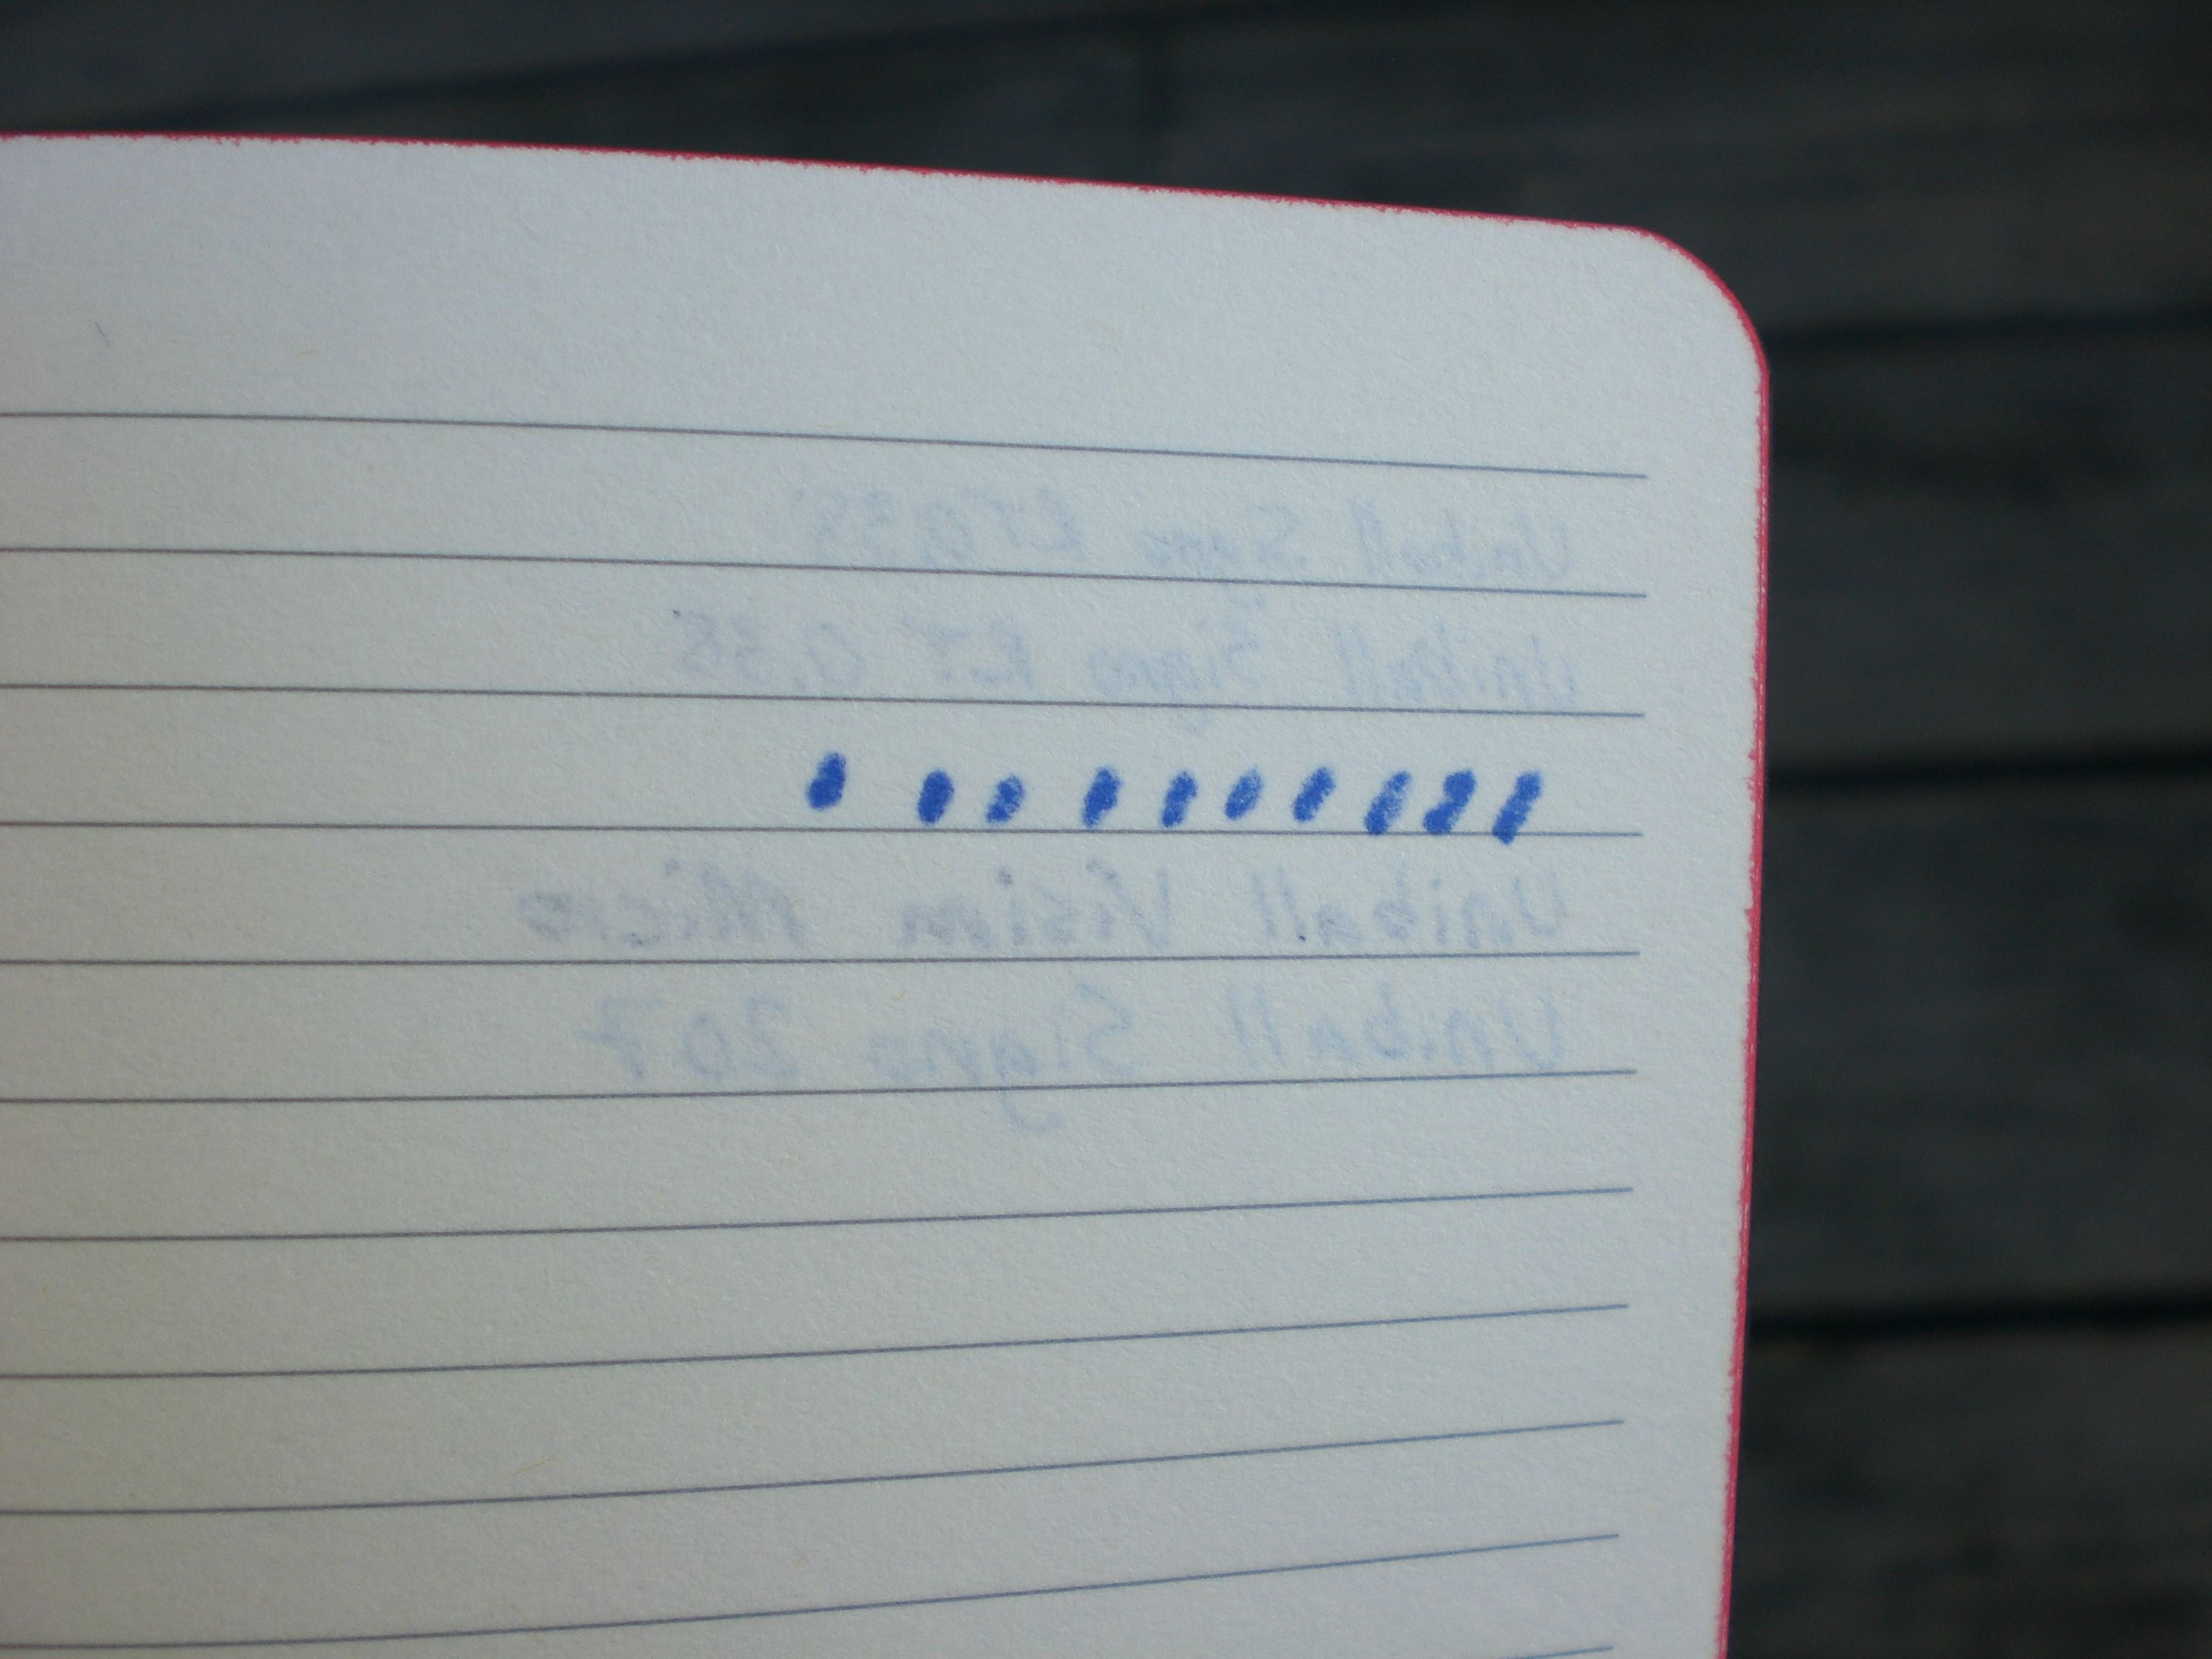 Uniball Signo RT 0.38
Uniball Signo RT 0.38
Uniball Vision Micro
Uniball Signo 207